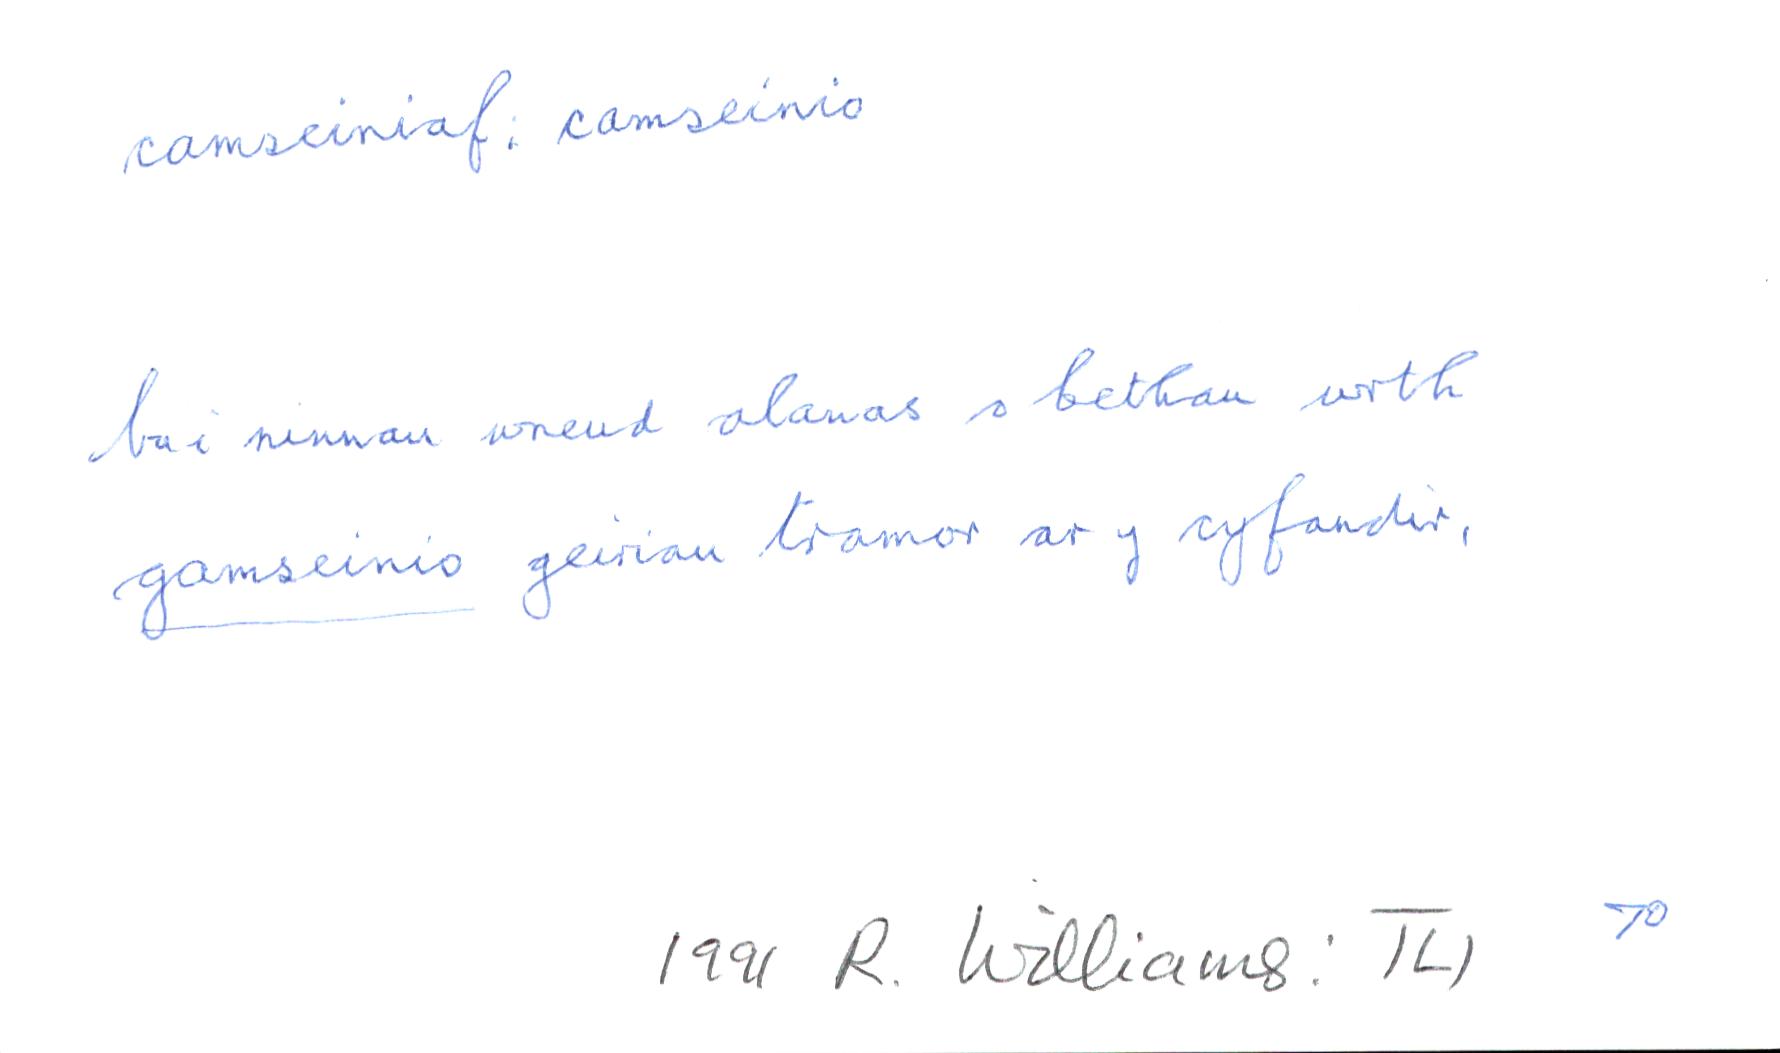 camseiniaf: camseinio
bu i ninnau wneud alanas o bethau wrth
gamseinio geiriau tramor ar y cyfandir,
1991 R. Williams: TLl 70